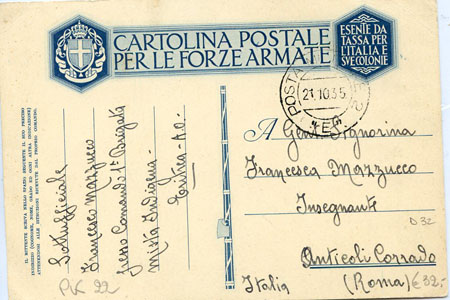 CARTOLINA POSTALE
PER LE FORZE ARMATE
ESENTE DA
TASSA PER
L'ITALIA E
SVE COLONIE
POSTA
21.10.35
A Gent. Signorina
Francesca Mazzucco
Insegnante
Anticoli Corrado
(Roma)
Italia
D 32
€ 32,-
IL MITTENTE SCRIVA NELLO SPAZIO SEGUENTE IL SUO PRECISO
INDIRIZZO (COGNOME, NOME, GRADO ED OGNI ALTRA INDICAZIONE)
ATTENENDOSI ALLE ISTRUZIONI RICEVUTE DAL PROPRIO COMANDO.
Sottufficiale
Francesco Mazzucco
presso Comando 1ª Brigata
Mista Indigena
Eritrea - A.O.
22